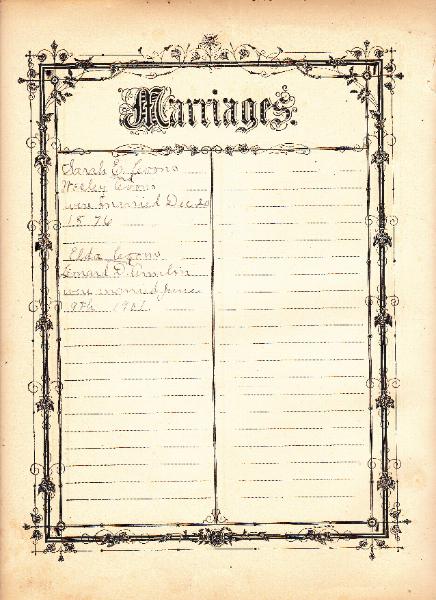 Marriages.
Sarah E. Evans
Wesley Evans
were married Dec 20
1876
Elda Evans
were married June
9th 1901